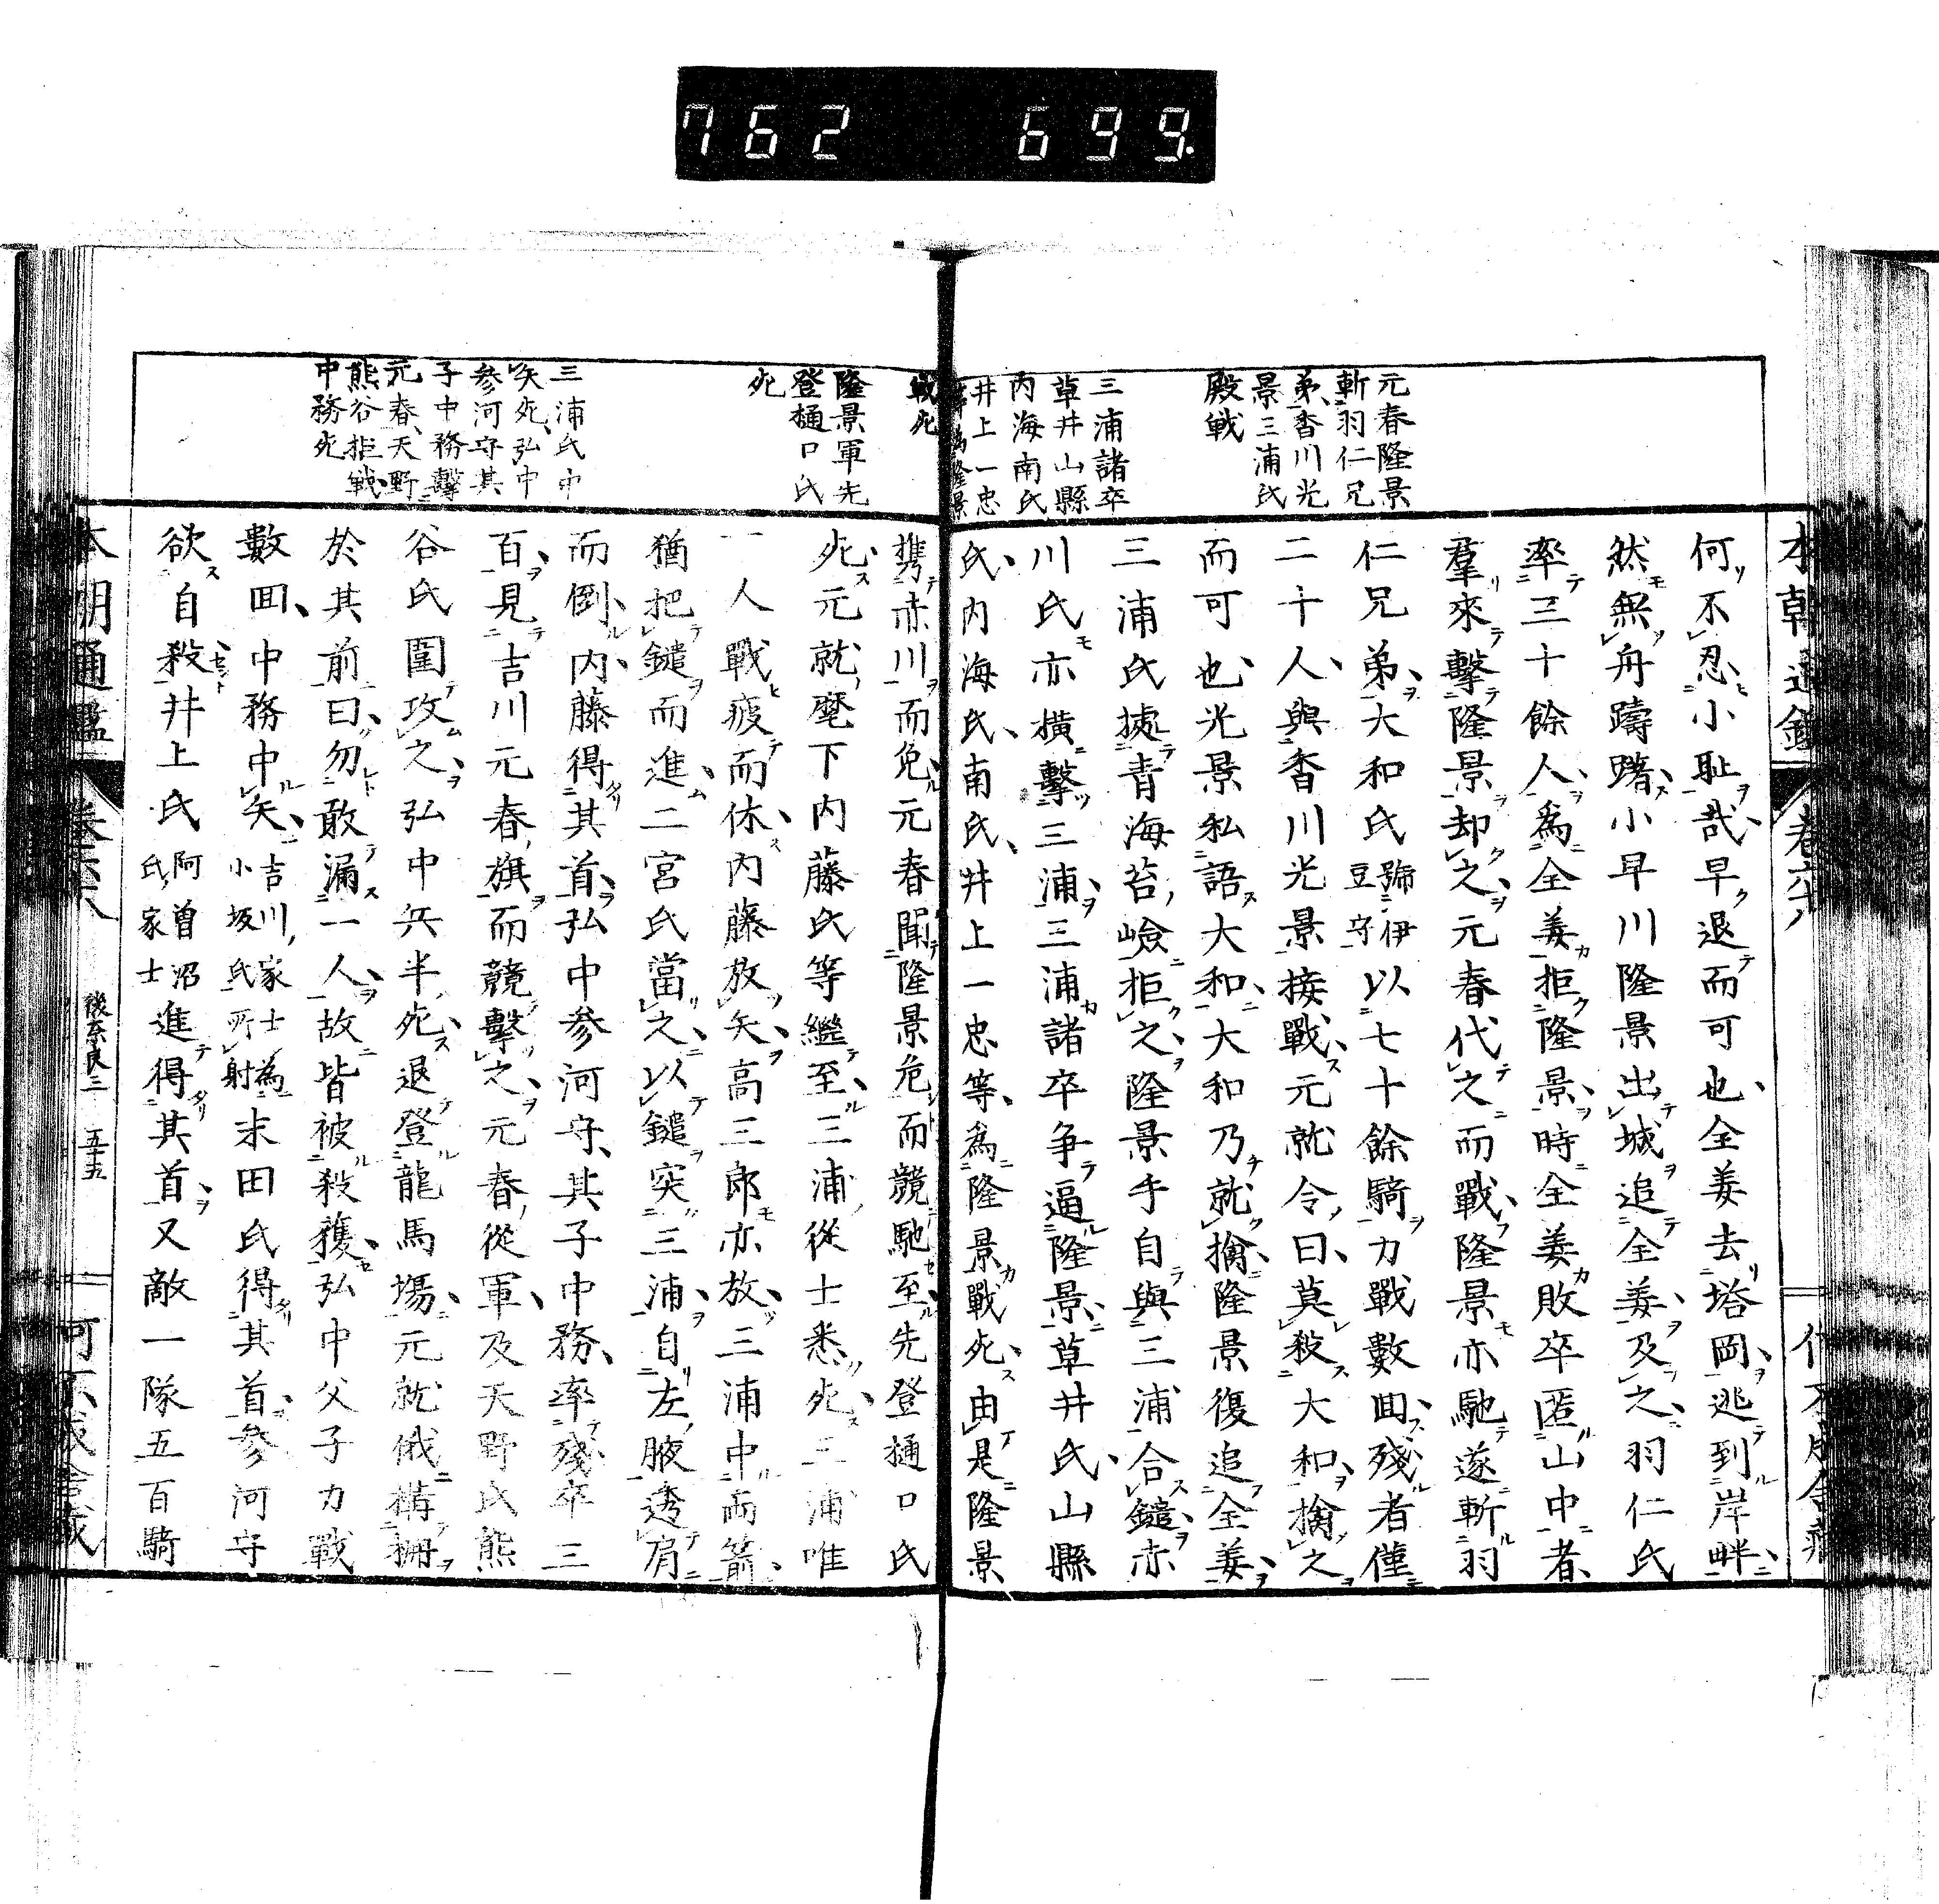 762 699.
元春隆景
斬羽仁兄
弟、香川光
景三浦氏
殿戦
三浦諸卒
草井山縣
内海南氏
井上一忠
何不忍小恥哉早退而可也全姜去塔岡逃到岸畔
然無舟躊躇小早川隆景出城追全姜及之羽仁氏
率三十餘人為全姜拒隆景時全姜敗卒匿山中者
羣來擊隆景却之元春代之而戰隆景亦馳遂斬羽
仁兄弟大和氏號伊豆守以七十餘騎力戰數囬殘者僅
二十人與香川光景接戰元就令曰莫殺大和擒之
而可也光景私語大和大和乃就擒隆景復追全姜
三浦氏據青海苔嶮拒之隆景手自與三浦合鑓赤
川氏亦橫擊三浦三浦諸卒争逼隆景草井氏山縣
氏内海氏南氏井上一忠等為隆景戰死由是隆景
戦死
隆景軍先
登樋口氏
死
三浦氏中
矢死、弘中
参河守其
子中務擊
元春、天野
熊谷拒戦、
中務死
携赤川而免元春聞隆景危而競馳至先登樋口氏
死元就麾下内藤氏等繼至三浦從士悉死三浦唯
一人戰疲而休内藤放矢高三郎亦放三浦中兩箭
猶把鑓而進二宮氏當之以鑓突三浦自左腋透肩
而倒内藤得其首弘中参河守其子中務率殘卒三
百見吉川元春旗而競擊之元春從軍及天野氏熊
谷氏圍攻之弘中兵半死退登龍馬場元就俄構柵
於其前曰勿敢漏一人故皆被殺獲弘中父子力戰
數囬中務中矢吉川家士小坂氏為所射末田氏得其首参河守
欲自殺井上氏阿曽沼氏家士進得其首又敵一隊五百騎
本朝通鑑 卷六十八 後奈良三 五十五